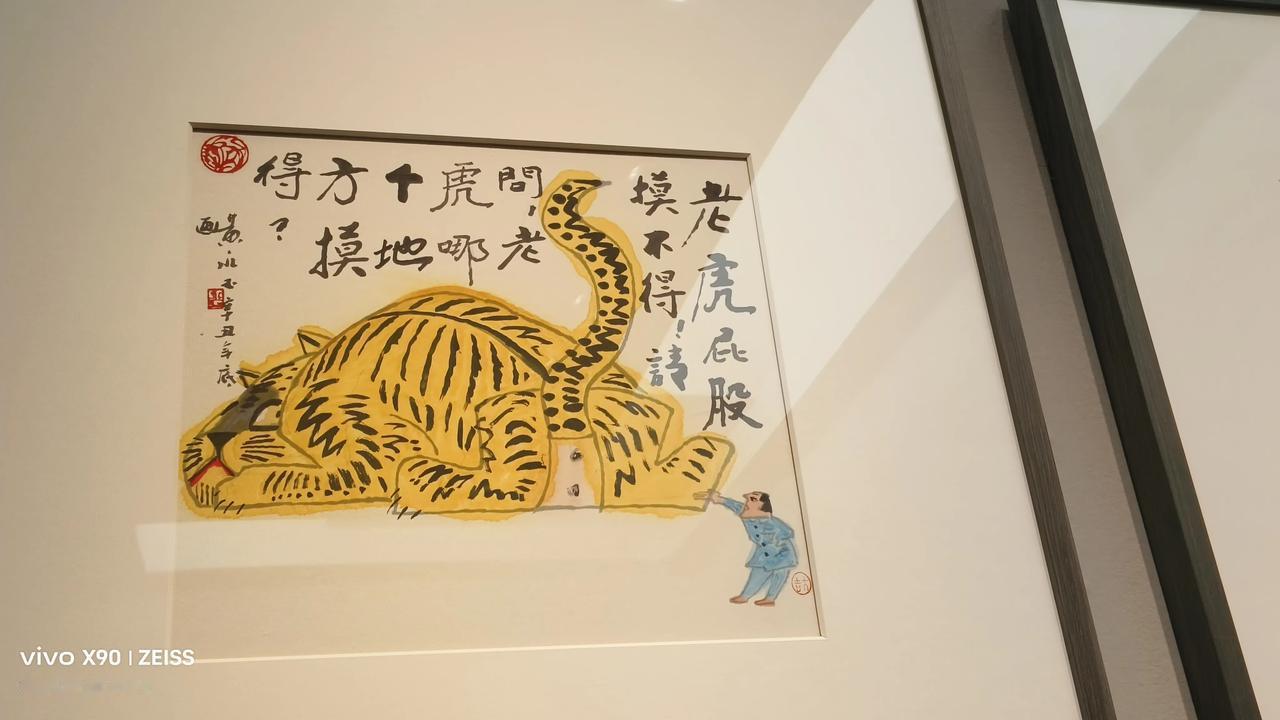 老虎屁股
摸不得！請
問，老
虎哪
个地
方摸
得？
黃永玉辛丑年底
画
vivo X90 | ZEISS